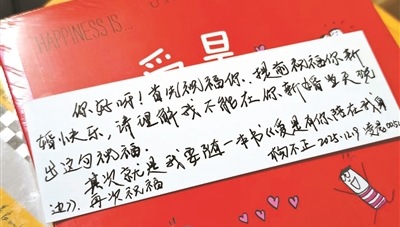 HAPPINESS IS...
爱是
你好呀！首先祝福你，提前祝福你新
婚快乐，请理解我不能在你新婚当天说
出这句祝福。
其次就是我要随一本书《爱是有你陪在我身
边》，再次祝福
杨不正 2025.12.9 凌晨00:51